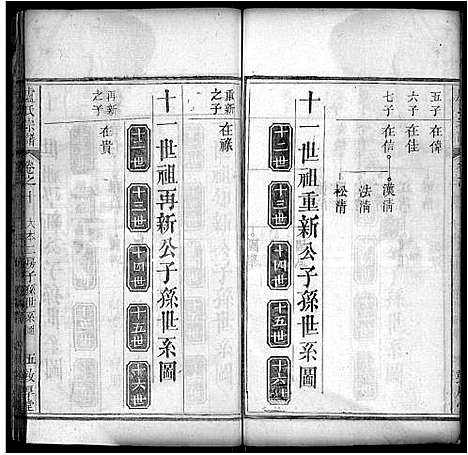 五子 在偉
六子 在佳
七子 在信
漢清
法清
松清
十一世祖重新公子孫世系圖
十二世
十三世
十四世
十五世
十六世
重新之子 在祿
十一世祖再新公子孫世系圖
十二世
十三世
十四世
十五世
十六世
再新之子 在貴
氏宗譜
卷之十
房子孫世系圖
五
敦厚堂